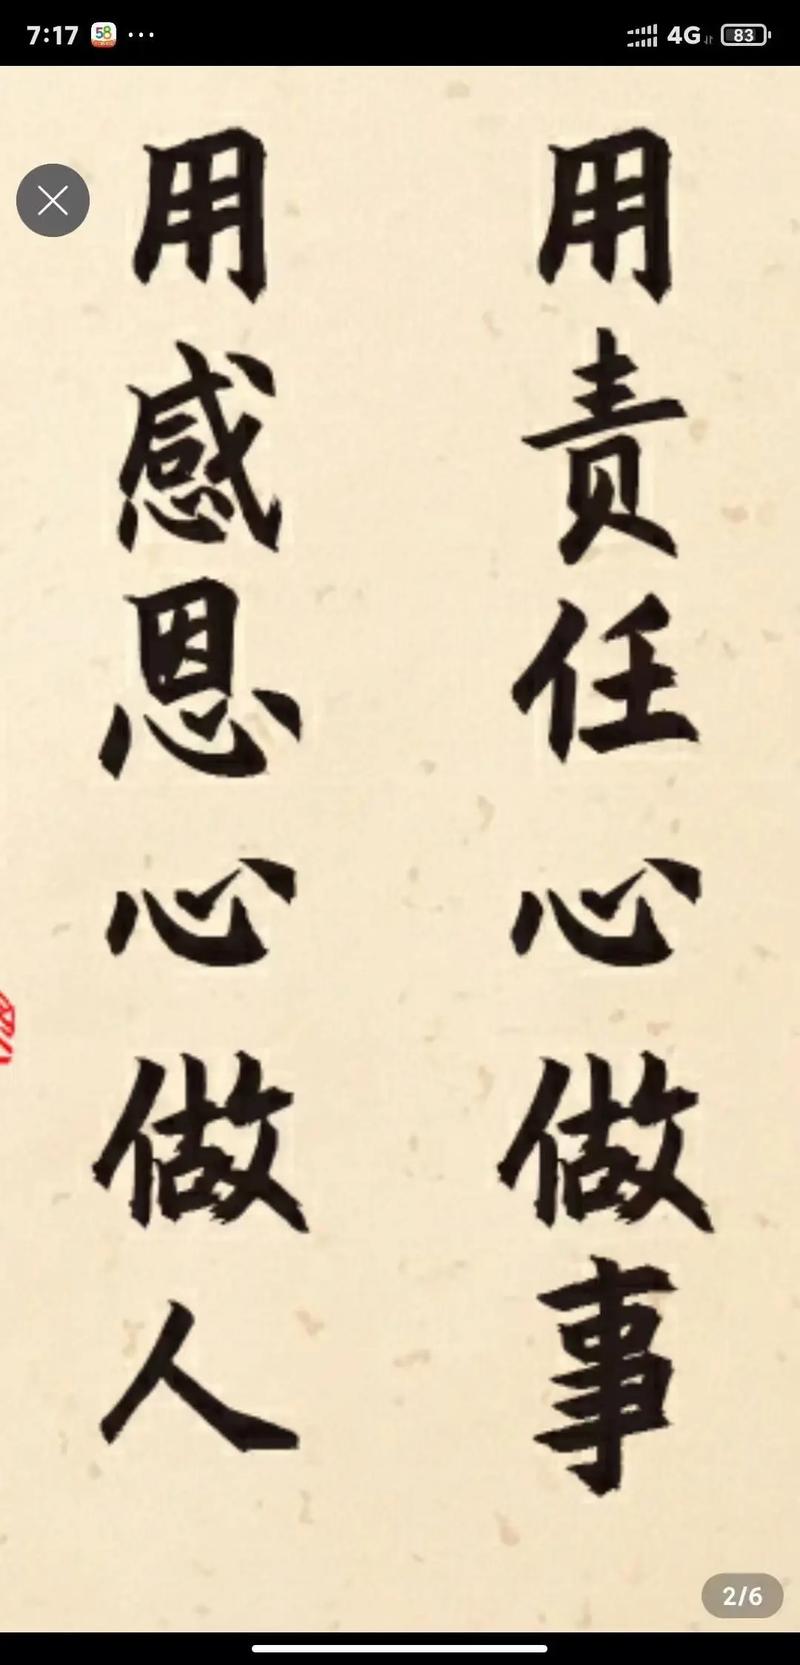 7:17 58 ··· 4G 83
用责任心做事
用感恩心做人
2/6